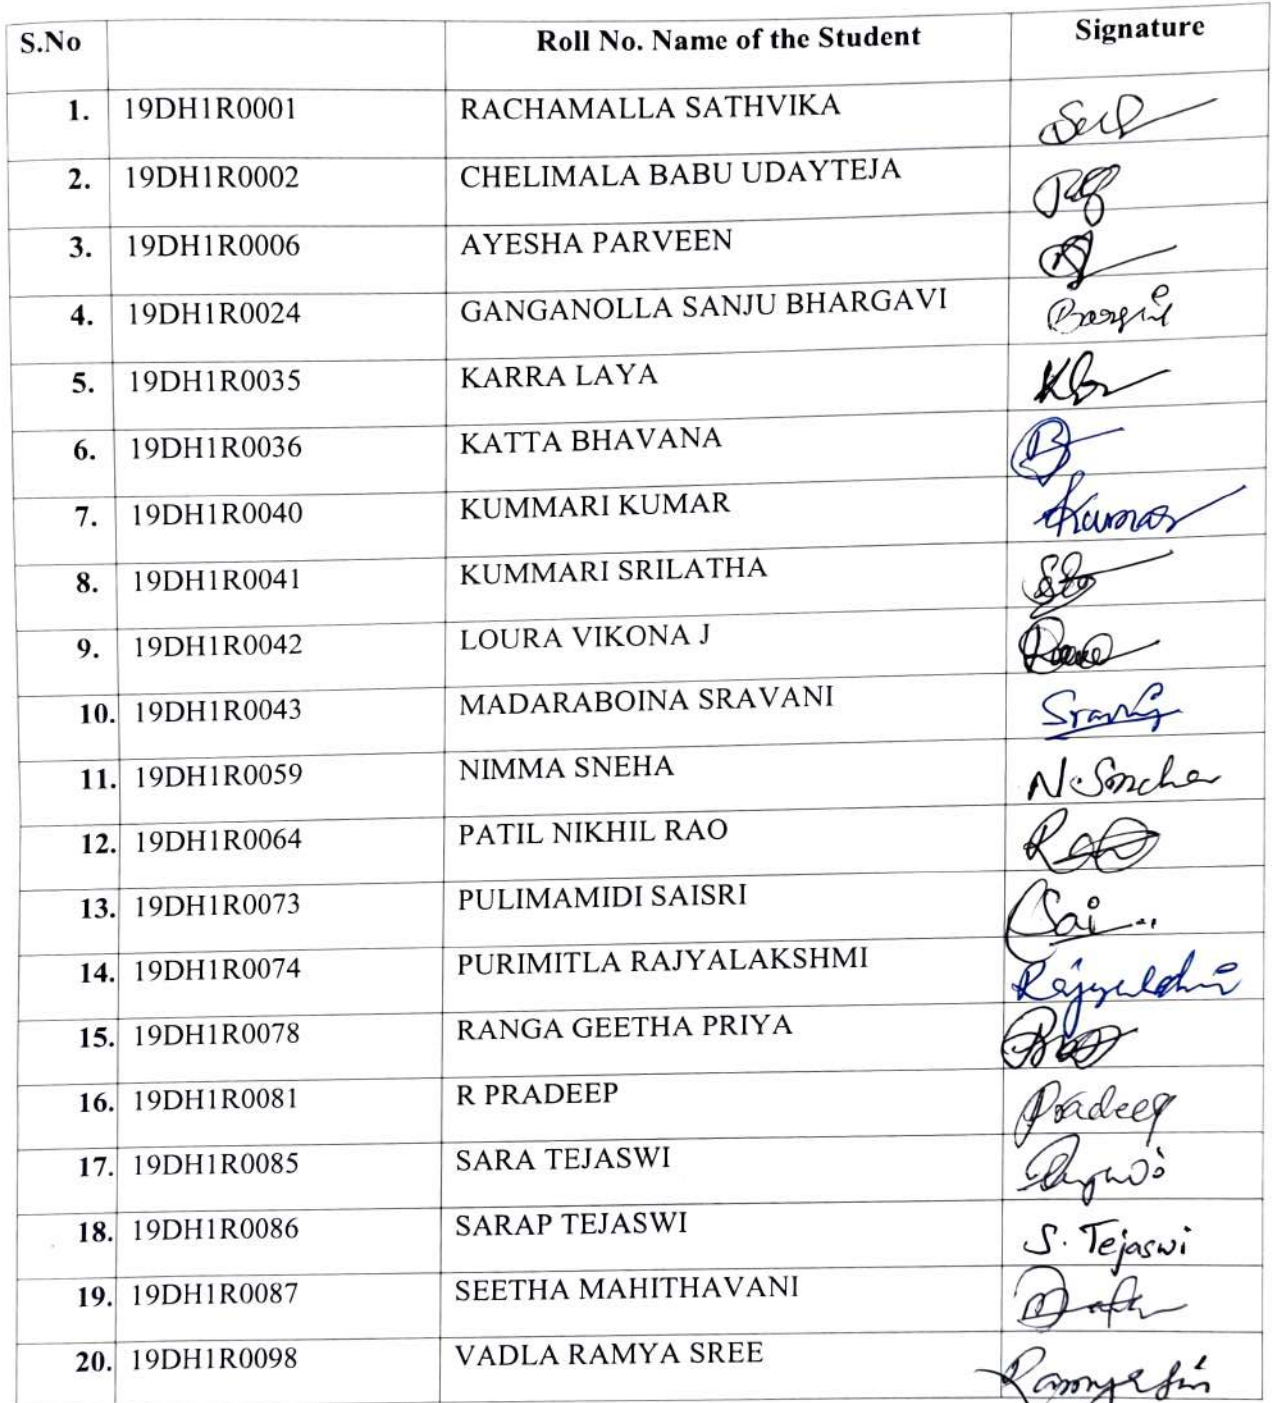 S.No Roll No. Name of the Student Signature
1. 19DH1R0001 RACHAMALLA SATHVIKA
2. 19DH1R0002 CHELIMALA BABU UDAYTEJA
3. 19DH1R0006 AYESHA PARVEEN
4. 19DH1R0024 GANGANOLLA SANJU BHARGAVI
5. 19DH1R0035 KARRA LAYA
6. 19DH1R0036 KATTA BHAVANA
7. 19DH1R0040 KUMMARI KUMAR Kumar
8. 19DH1R0041 KUMMARI SRILATHA
9. 19DH1R0042 LOURA VIKONA J
10. 19DH1R0043 MADARABOINA SRAVANI
11. 19DH1R0059 NIMMA SNEHA
12. 19DH1R0064 PATIL NIKHIL RAO
13. 19DH1R0073 PULIMAMIDI SAISRI Sai
14. 19DH1R0074 PURIMITLA RAJYALAKSHMI
15. 19DH1R0078 RANGA GEETHA PRIYA
16. 19DH1R0081 R PRADEEP Pradeep
17. 19DH1R0085 SARA TEJASWI
18. 19DH1R0086 SARAP TEJASWI S. Tejaswi
19. 19DH1R0087 SEETHA MAHITHAVANI
20. 19DH1R0098 VADLA RAMYA SREE